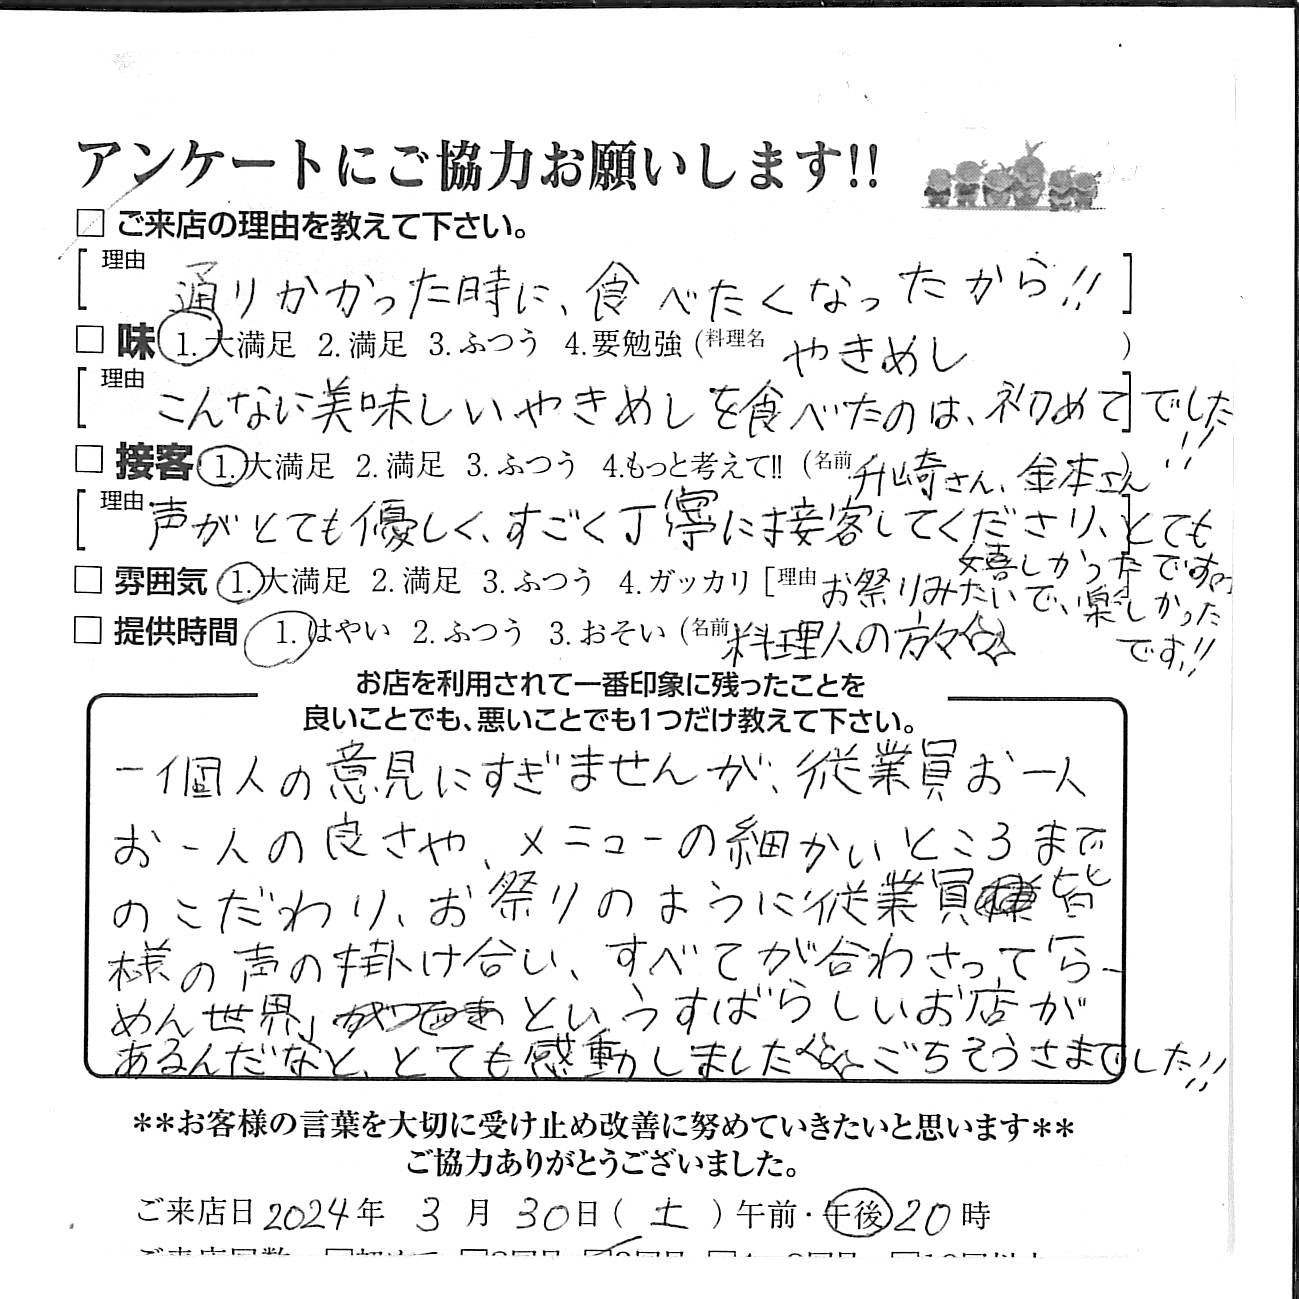 アンケートにご協力お願いします!!
□ ご来店の理由を教えて下さい。
[理由 通りかかった時に、食べたくなったから!!]
□ 味 1.大満足 2.満足 3.ふつう 4.要勉強 (料理名 やきめし)
[理由 こんなに美味しいやきめしを食べたのは、初めて]でした!!
□ 接客 1.大満足 2.満足 3.ふつう 4.もっと考えて!! (名前 升崎さん、金本さん)
[理由 声がとても優しく、すごく丁寧に接客してくださり、とても
嬉しかったです
□ 雰囲気 1.大満足 2.満足 3.ふつう 4.ガッカリ [理由 お祭りみたいで、楽しかった
です!!
□ 提供時間 1.はやい 2.ふつう 3.おそい (名前 料理人の方々
お店を利用されて一番印象に残ったことを
良いことでも、悪いことでも1つだけ教えて下さい。
一個人の意見にすぎませんが、従業員お一人
お一人の良さや、メニューの細かいところまで
のこだわり、お祭りのように従業員皆
様の声の掛け合い、すべてが合わさって「らー
めん世界」というすばらしいお店が
あるんだなと、とても感動しました ごちそうさまでした!!
**お客様の言葉を大切に受け止め改善に努めていきたいと思います**
ご協力ありがとうございました。
ご来店日 2024年 3月 30日(土) 午前・午後 20時